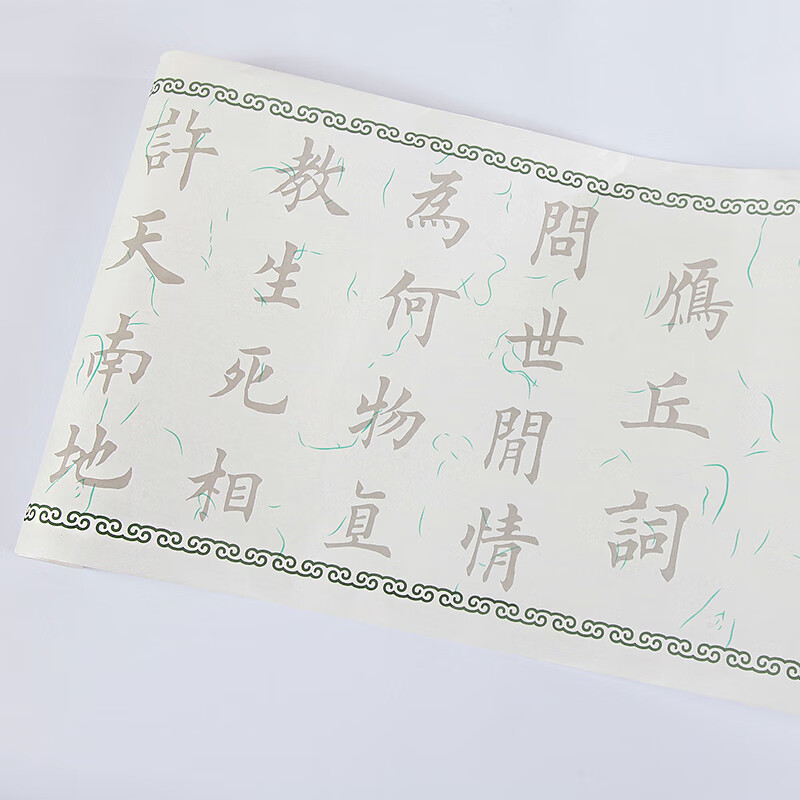 鴈丘詞
問世閒情
為何物直
教生死相
許天南地